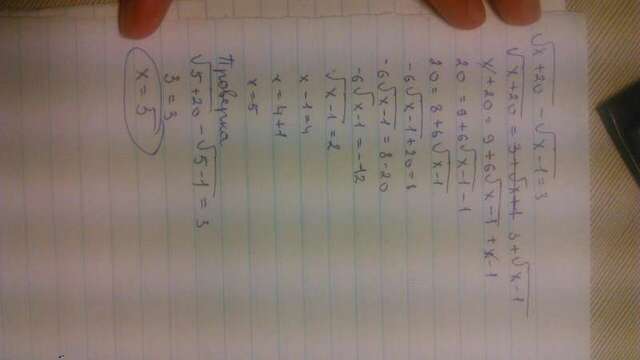 √x+20 - √x-1 = 3
√x+20 = 3+√x-1
x+20 = 9+6√x-1 + x-1
20 = 9+6√x-1 -1
20 = 8+6√x-1
-6√x-1 +20 = 8
-6√x-1 = 8-20
-6√x-1 = -12
√x-1 = 2
x-1 = 4
x = 4+1
x = 5
Проверка
√5+20 - √5-1 = 3
3 = 3
x = 5